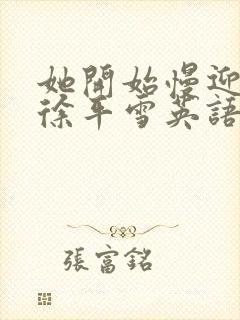 她開始慢迎
徐平雪英語
張富銘